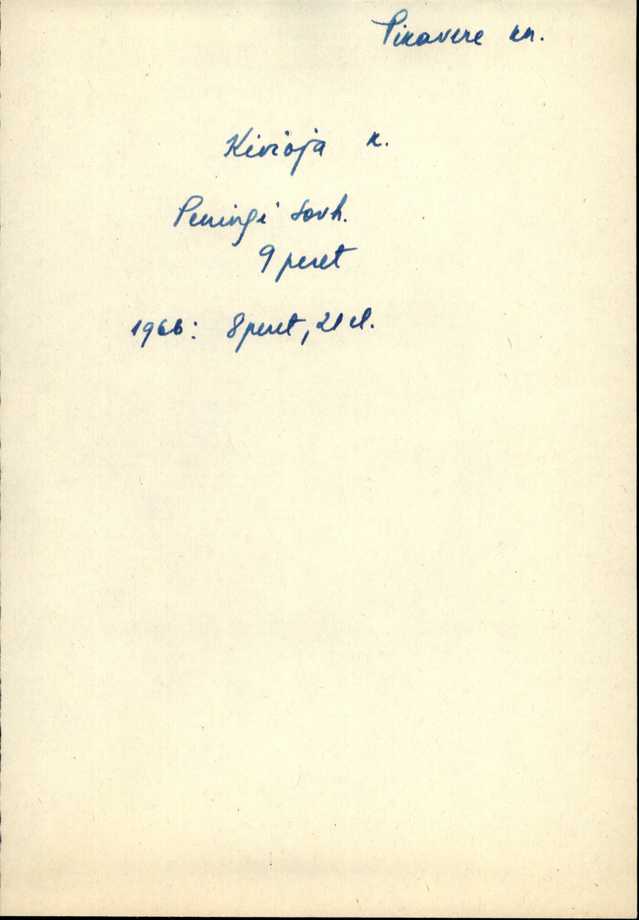 Pikavere kn.
Kivioja k.
Peningi sovh.
9 peret
1966: 8 peret, 21 el.